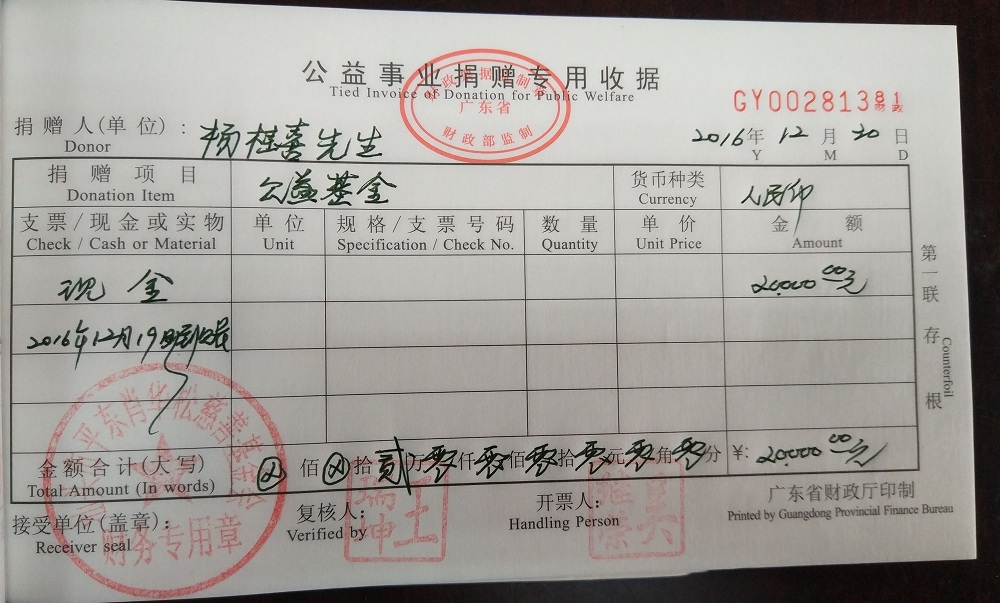 公益事业捐赠专用收据
Tied Invoice of Donation for Public Welfare
广东省
财政部监制
GY00281381
捐赠人(单位): 杨桂善先生
Donor
2016年 12月 20日
Y M D
捐赠项目 公益基金 货币种类 人民币
Donation Item Currency
支票/现金或实物 单位 规格/支票号码 数量 单价 金额
Check / Cash or Material Unit Specification / Check No. Quantity Unit Price Amount
现金 20000.00元
2016年12月19日
第一联 存根
Counterfoil
金额合计(大写) 佰 拾 贰万 零仟 零佰 零拾 零元 零角 零分 ¥: 20000.00元
Total Amount (In words)
接受单位(盖章): 复核人: 开票人: 广东省财政厅印制
Receiver seal Verified by Handling Person Printed by Guangdong Provincial Finance Bureau
财务专用章